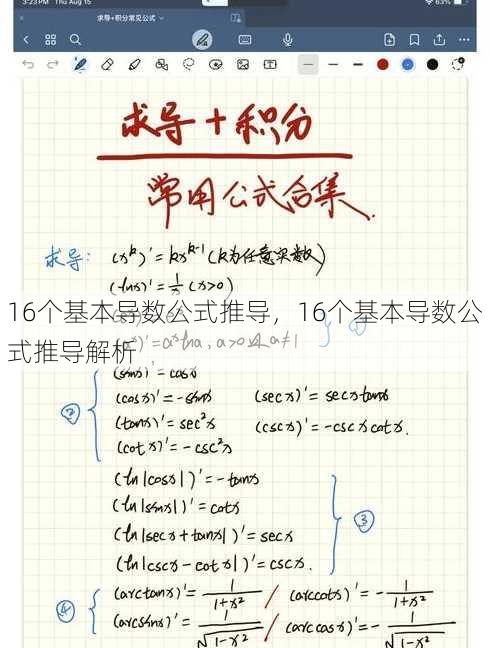 3:23 PM Thu Aug 15 63%
求导+积分常见公式
求导+积分
常用公式合集
求导: (x^k)' = kx^{k-1} (k为任意实数)
(lnx)' = 1/x (x>0)
16个基本导数公式推导，16个基本导数公
式推导解析
)' = a^x lna, a>0 a≠1
(sinx)' = cosx
② (cosx)' = -sinx (secx)' = secxtanx
(tanx)' = sec²x (cscx)' = -cscxcotx.
(cotx)' = -csc²x
(ln|cosx|)' = -tanx
(ln|sinx|)' = cotx
(ln|secx+tanx|)' = secx ③
(ln|cscx-cotx|)' = cscx.
④ (arctanx)' = 1/(1+x²) / (arccotx)' = -1/(1+x²)
(arcsinx)' = 1/√(1-x²) / (arccosx)' = -1/√(1-x²)